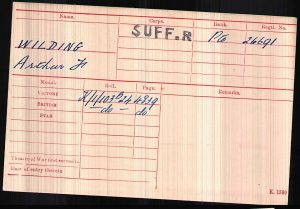 Name. Corps. Rank. Regtl. No.
WILDING SUFF.R Pte 26691
Arthur Jr
Medal. Roll. Page. Remarks.
VICTORY K/1/103B24 4839
BRITISH -do- -do-
STAR
Theatre of War first served in
Date of entry therein
K. 1380